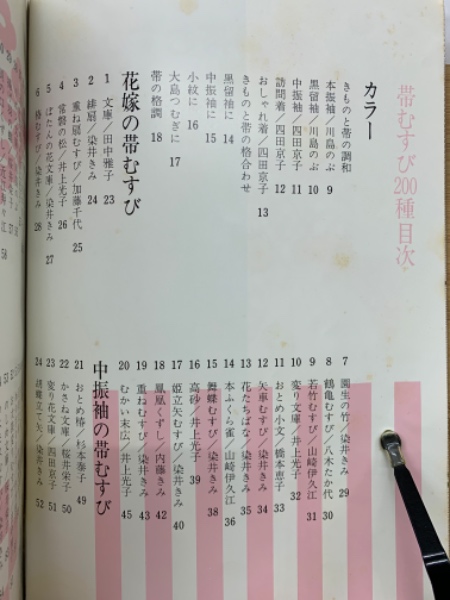 帯むすび200種目次
カラー
きものと帯の調和
本振袖/川島のぶ 9
黒留袖/川島のぶ 10
中振袖/四田京子 11
訪問着/四田京子 12
おしゃれ着/四田京子 13
きものと帯の格合わせ
黒留袖に 14
中振袖に 15
小紋に 16
大島つむぎに 17
帯の格調 18
花嫁の帯むすび
1 文庫/田中雅子 23
2 緋扇/染井きみ 24
3 重ね扇むすび/加藤千代 25
4 常磐の松/井上光子 26
5 ぼたんの花文庫/染井きみ 27
6 椿むすび/染井きみ 28
7 園生の竹/染井きみ 29
8 鶴亀むすび/八木たか代 30
9 若竹むすび/山崎伊久江 31
10 変り文庫/井上光子 32
11 おとめ小文/橋本恵子 33
12 矢車むすび/染井きみ 34
13 花たちばな/染井きみ 35
14 本ふくら雀/山崎伊久江 36
15 舞蝶むすび/染井きみ 38
16 高砂/井上光子 39
17 姫立矢むすび/染井きみ 40
18 鳳凰くずし/内藤きみ 42
19 重ねむすび/染井きみ 43
20 むかい末広/井上光子 45
中振袖の帯むすび
21 おとめ椿/杉本泰子 49
22 かさね文庫/桜井栄子 50
23 変り花文庫/四田京子 51
24 胡蝶立て矢/染井きみ 52